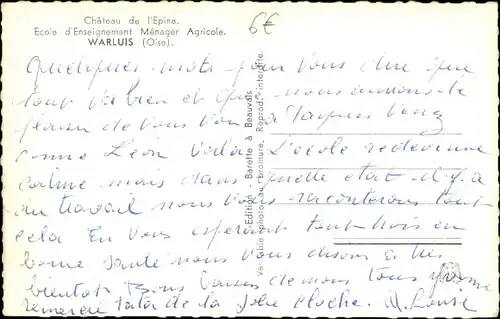 Château de l'Epine.
Ecole d'Enseignement Ménager Agricole.
WARLUIS (Oise).
6€
Quelques mots pour vous dire que
tout va bien et que nous aurons le
plaisir de vous voir à Jacques
comme Léon voilà L'école redevenue
calme mais dans quelle état il y a
du travail nous vous raconterons tout
cela En vous espérant tout trois en
bonne santé nous vous disons à très
bientôt Bons baisers de nous tous
remercie tata de la jolie cloche. M. Louise
Edition Barotte à Beauvais
Véritable photo au bromure. Reprod. interdite.